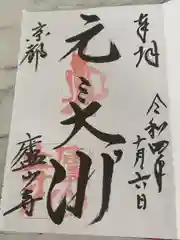 奉拝
令和四年
十月六日
元三大師
京都
廬山寺